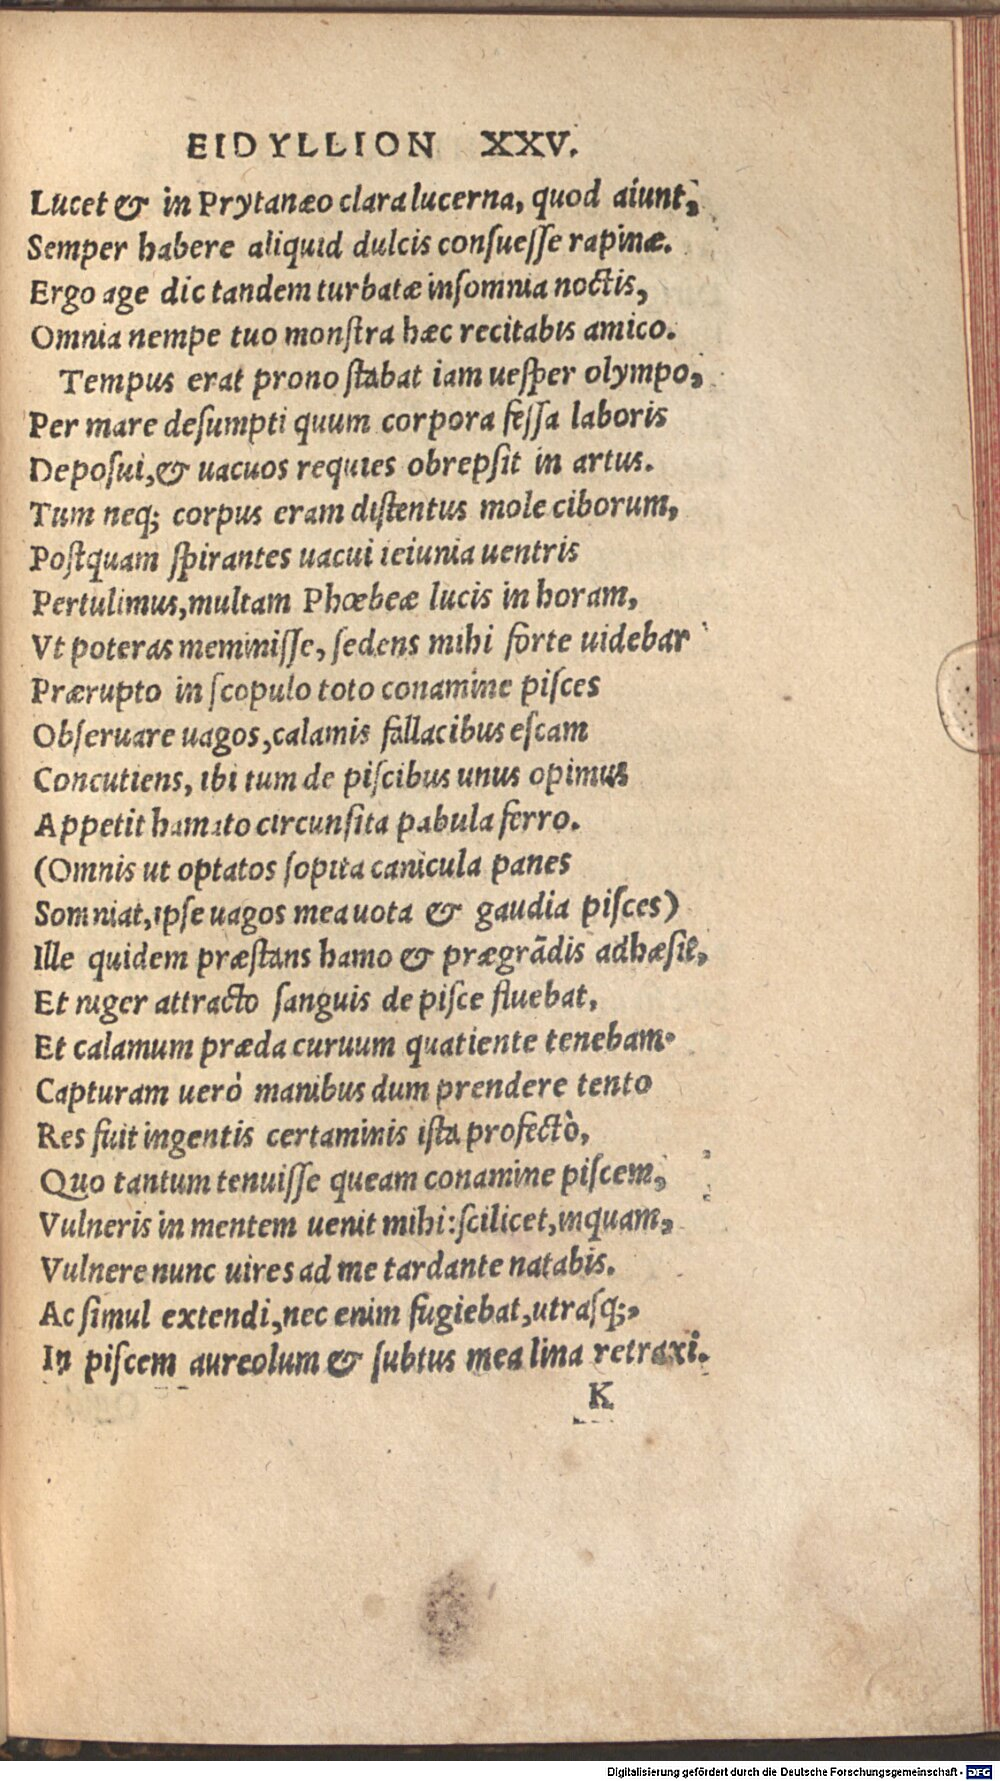 EIDYLLION XXV.
Lucet & in Prytanæo clara lucerna, quod aiunt,
Semper habere aliquid dulcis consuesse rapinæ.
Ergo age dic tandem turbatæ insomnia noctis,
Omnia nempe tuo monstra hæc recitabis amico.
Tempus erat prono stabat iam uesper olympo,
Per mare desumpti quum corpora fessa laboris
Deposui,& uacuos requies obrepsit in artus.
Tum neq; corpus eram distentus mole ciborum,
Postquam spirantes uacui ieiunia uentris
Pertulimus,multam Phœbeæ lucis in horam,
Vt poteras meminisse, sedens mihi forte uidebar
Prærupto in scopulo toto conamine pisces
Obseruare uagos,calamis fallacibus escam
Concutiens, ibi tum de piscibus unus opimus
Appetit hamato circunsita pabula ferro.
(Omnis ut optatos sopita canicula panes
Somniat,ipse uagos mea uota & gaudia pisces)
Ille quidem præstans hamo & prægrãdis adhæsit,
Et niger attracto sanguis de pisce fluebat,
Et calamum præda curuum quatiente tenebam.
Capturam uerò manibus dum prendere tento
Res fuit ingentis certaminis ista profectò,
Quo tantum tenuisse queam conamine piscem,
Vulneris in mentem uenit mihi:scilicet,inquam,
Vulnere nunc uires ad me tardante natabis.
Ac simul extendi,nec enim fugiebat,utrasq;,
In piscem aureolum & subtus mea lina retraxi.
K
Digitalisierung gefördert durch die Deutsche Forschungsgemeinschaft - DFG